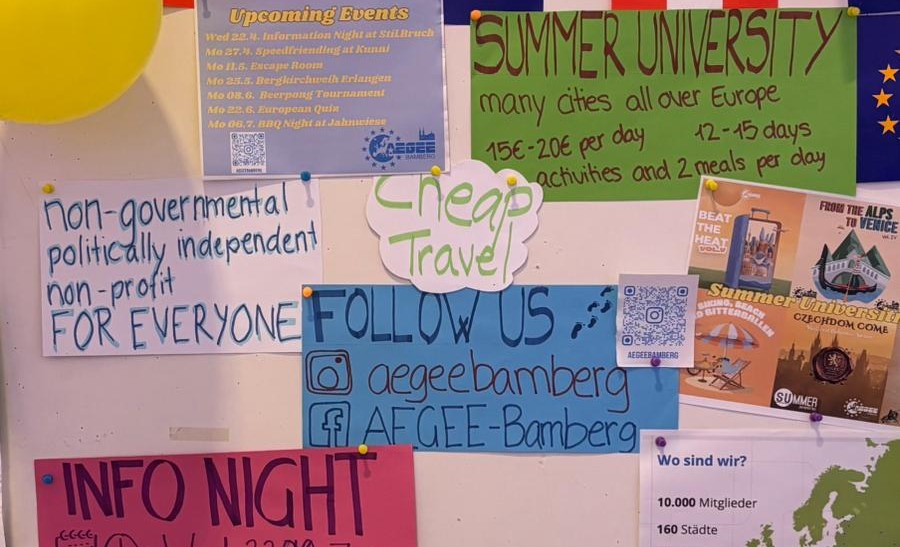 Upcoming Events
Wed 22.4. Information Night at StilBruch
Mo 27.4. Speedfriending at Kunni
Mo 11.5. Escape Room
Mo 25.5. Bergkirchweih Erlangen
Mo 08.6. Beerpong Tournament
Mo 22.6. European Quiz
Mo 06.7. BBQ Night at Jahnwiese
AEGEE
BAMBERG
SUMMER UNIVERSITY
many cities all over Europe
15€-20€ per day 12-15 days
activities and 2 meals per day
non-governmental
politically independent
non-profit
FOR EVERYONE
Cheap
Travel
FOLLOW US
aegeebamberg
AEGEE-Bamberg
AEGEEBAMBERG
BEAT
THE
HEAT
FROM THE ALPS
TO VENICE
Summer Universiti
BIKING, BEACH
BITTERBALLEN
CZECHDOM COME
SUMMER
AEGEE
INFO NIGHT
Wo sind wir?
10.000 Mitglieder
160 Städte